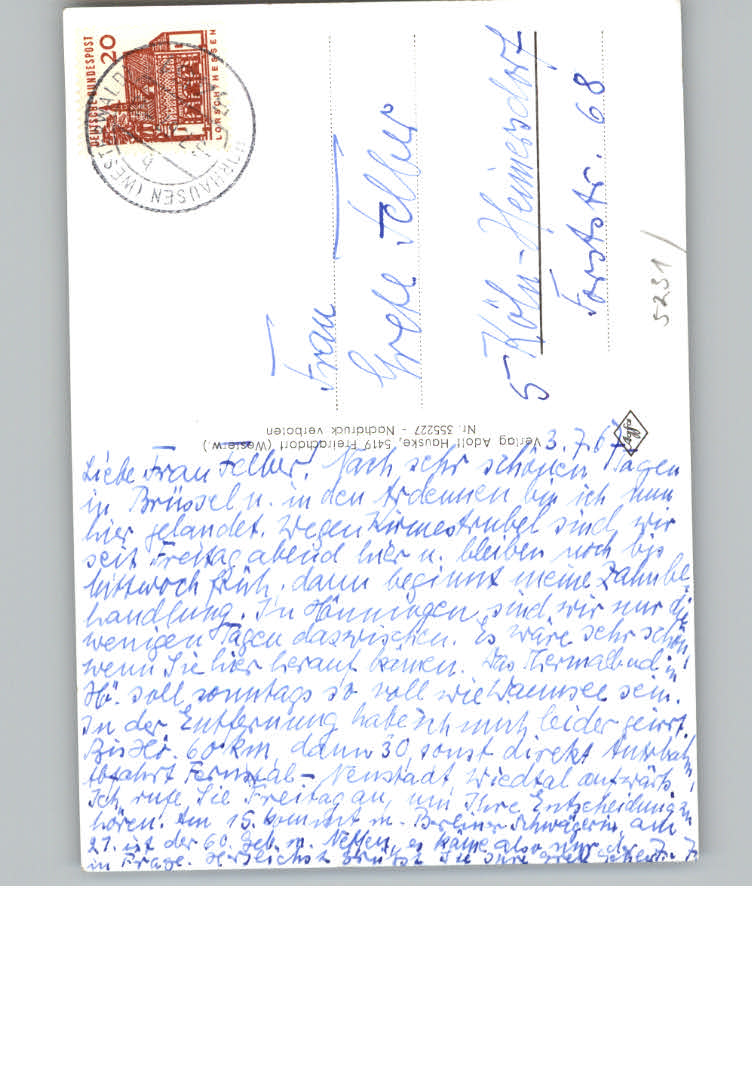 DEUTSCHE BUNDESPOST
20
LORSCH/HESSEN
(WESTERWALD)
Frau
Grete Felber
5 Köln-Heimersdorf
Forststr. 68
5231/
Verlag Adolf Hauske, 5419 Freirachdorf (Westerw.)
Nr. 355227 - Nachdruck verboten
Agfa
3.7.67
Liebe Frau Felber! Nach sehr schönen Tagen
in Brüssel u. in den Ardennen bin ich nun
hier gelandet. Wegen Kirmestrubel sind wir
seit Freitag abend hier u. bleiben noch bis
Mittwoch früh, dann beginnt meine Zahnbe-
handlung. In Hönningen sind wir nur die
wenigen Tagen dazwischen. Es wäre sehr schön,
wenn Sie hier herauf kämen. Das Thermalbad in
Hö. soll sonntags so voll wie Wannsee sein.
In der Entfernung habe ich mich leider geirrt.
Bis Hö. 60 km, dann 30, sonst direkt Autobahn,
Abfahrt Fernthal - Neustadt, Wiedtal aufwärts.
Ich rufe Sie Freitag an, um Ihre Entscheidung zu
hören. Am 15. kommt m. Berliner Schwägerin, am
27. ist der 60. Geb. m. Neffen, es käme also nur der
in Frage. Herzlichst grüßt Sie Ihre